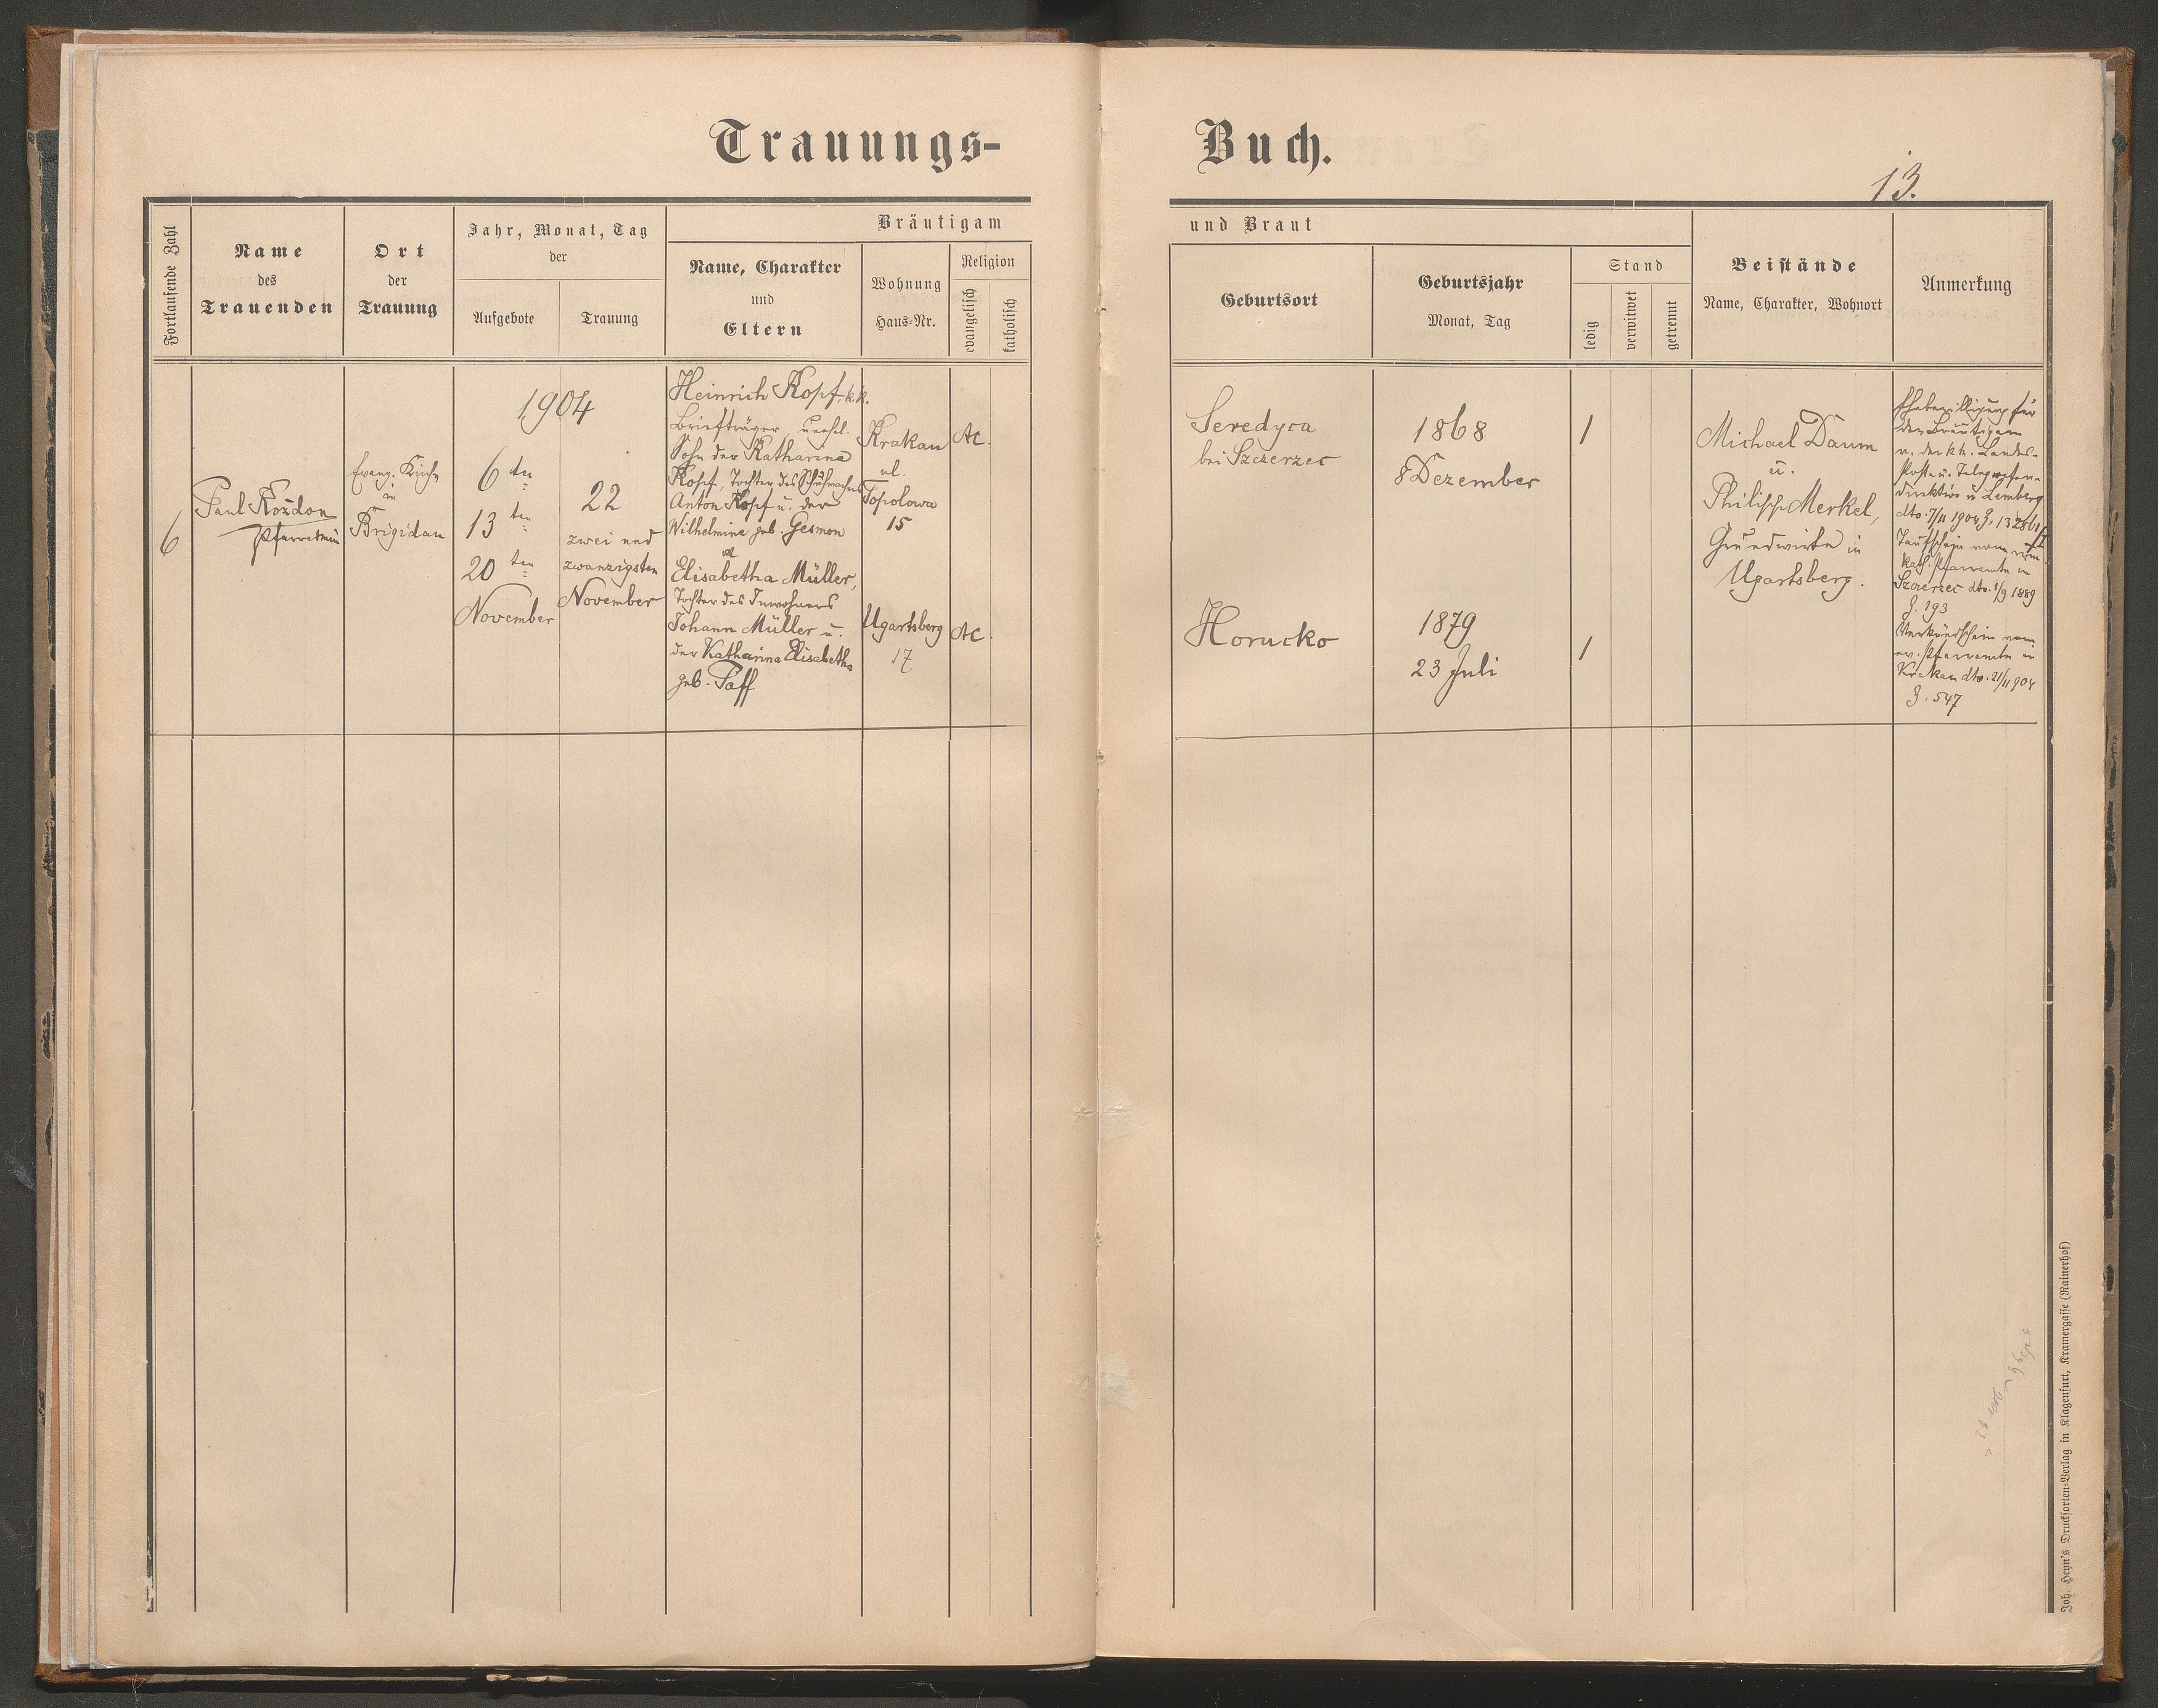 Trauungs-
Buch.
13.
Fortlaufende Zahl
Name
des
Trauenden
Ort
der
Trauung
Jahr, Monat, Tag
der
Aufgebote
Trauung
Bräutigam
Name, Charakter
und
Eltern
Wohnung
Haus-Nr.
Religion
evangelisch
katholisch
und Braut
Geburtsort
Geburtsjahr
Monat, Tag
Stand
ledig
verwitwet
getrennt
Beistände
Name, Charakter, Wohnort
Anmerkung
6
Paul Kozdon
Evang. Kirche
in
Brigidau
1904
6 ten
13 ten
20 ten
November
22
zwei und
zwanzigsten
November
Heinrich Kopf, k.k.
Briefträger, unehl.
Sohn der Katharina
Kopf, Tochter des Schuhmachers
Anton Kopf u. der
Wilhelmine geb. Gesmon
et
Elisabetha Müller,
Tochter des Inwohners
Johann Müller u.
der Katharina Elisabetha
geb. Paff
Krakau
ul.
Topolowa
15
Ugartsberg
17
AC.
AC.
Seredyca
bei Szczerzec
Horucko
1868
8 Dezember
1879
23 Juli
1
1
Michael Daum
u.
Philipp Merkel,
Grundwirte in
Ugartsberg.
Ehebewilligung für
den Bräutigam
v. der k.k. Landes-
Post u. Telegrafen-
direktion in Lemberg
dto. 7/11 1904 Z. 13286/I
Taufschein vom röm.
kath. Pfarramte in
Szczerzec dto. 1/9 1889
Z. 193
Verkündschein vom
ev. Pfarramte in
Krakau dto. 21/11 904
Z. 547
Joh. Heyn's Drucksorten-Verlag in Klagenfurt, Kramergasse (Rainerhof)